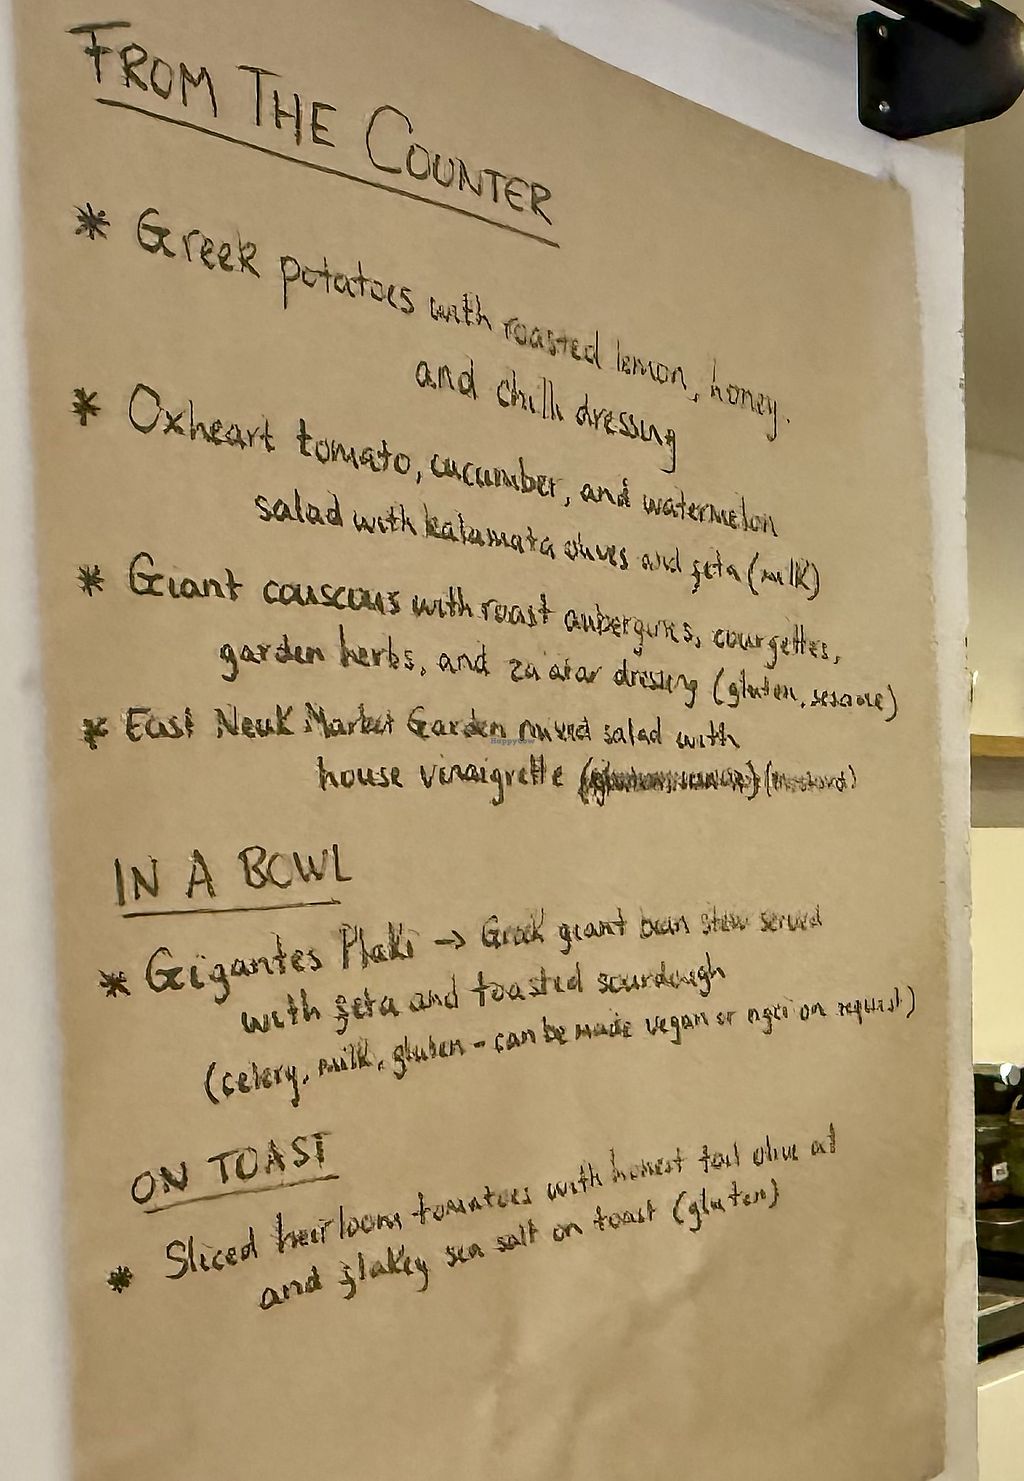 FROM THE COUNTER
* Greek potatoes with roasted lemon, honey.
and chilli dressing
* Oxheart tomato, cucumber, and watermelon
salad with kalamata olives and feta (milk)
* Giant couscous with roast aubergines, courgettes,
garden herbs, and za'atar dressing (gluten, sesame)
* East Neuk Market Garden mixed salad with
house vinaigrette (mustard)
HappyCow
IN A BOWL
* Gigantes Plaki → Greek giant bean stew served
with feta and toasted sourdough
(celery, milk, gluten - can be made vegan or ngci on request)
ON TOAST
* Sliced heirloom tomatoes with honest toil olive oil
and flakey sea salt on toast (gluten)